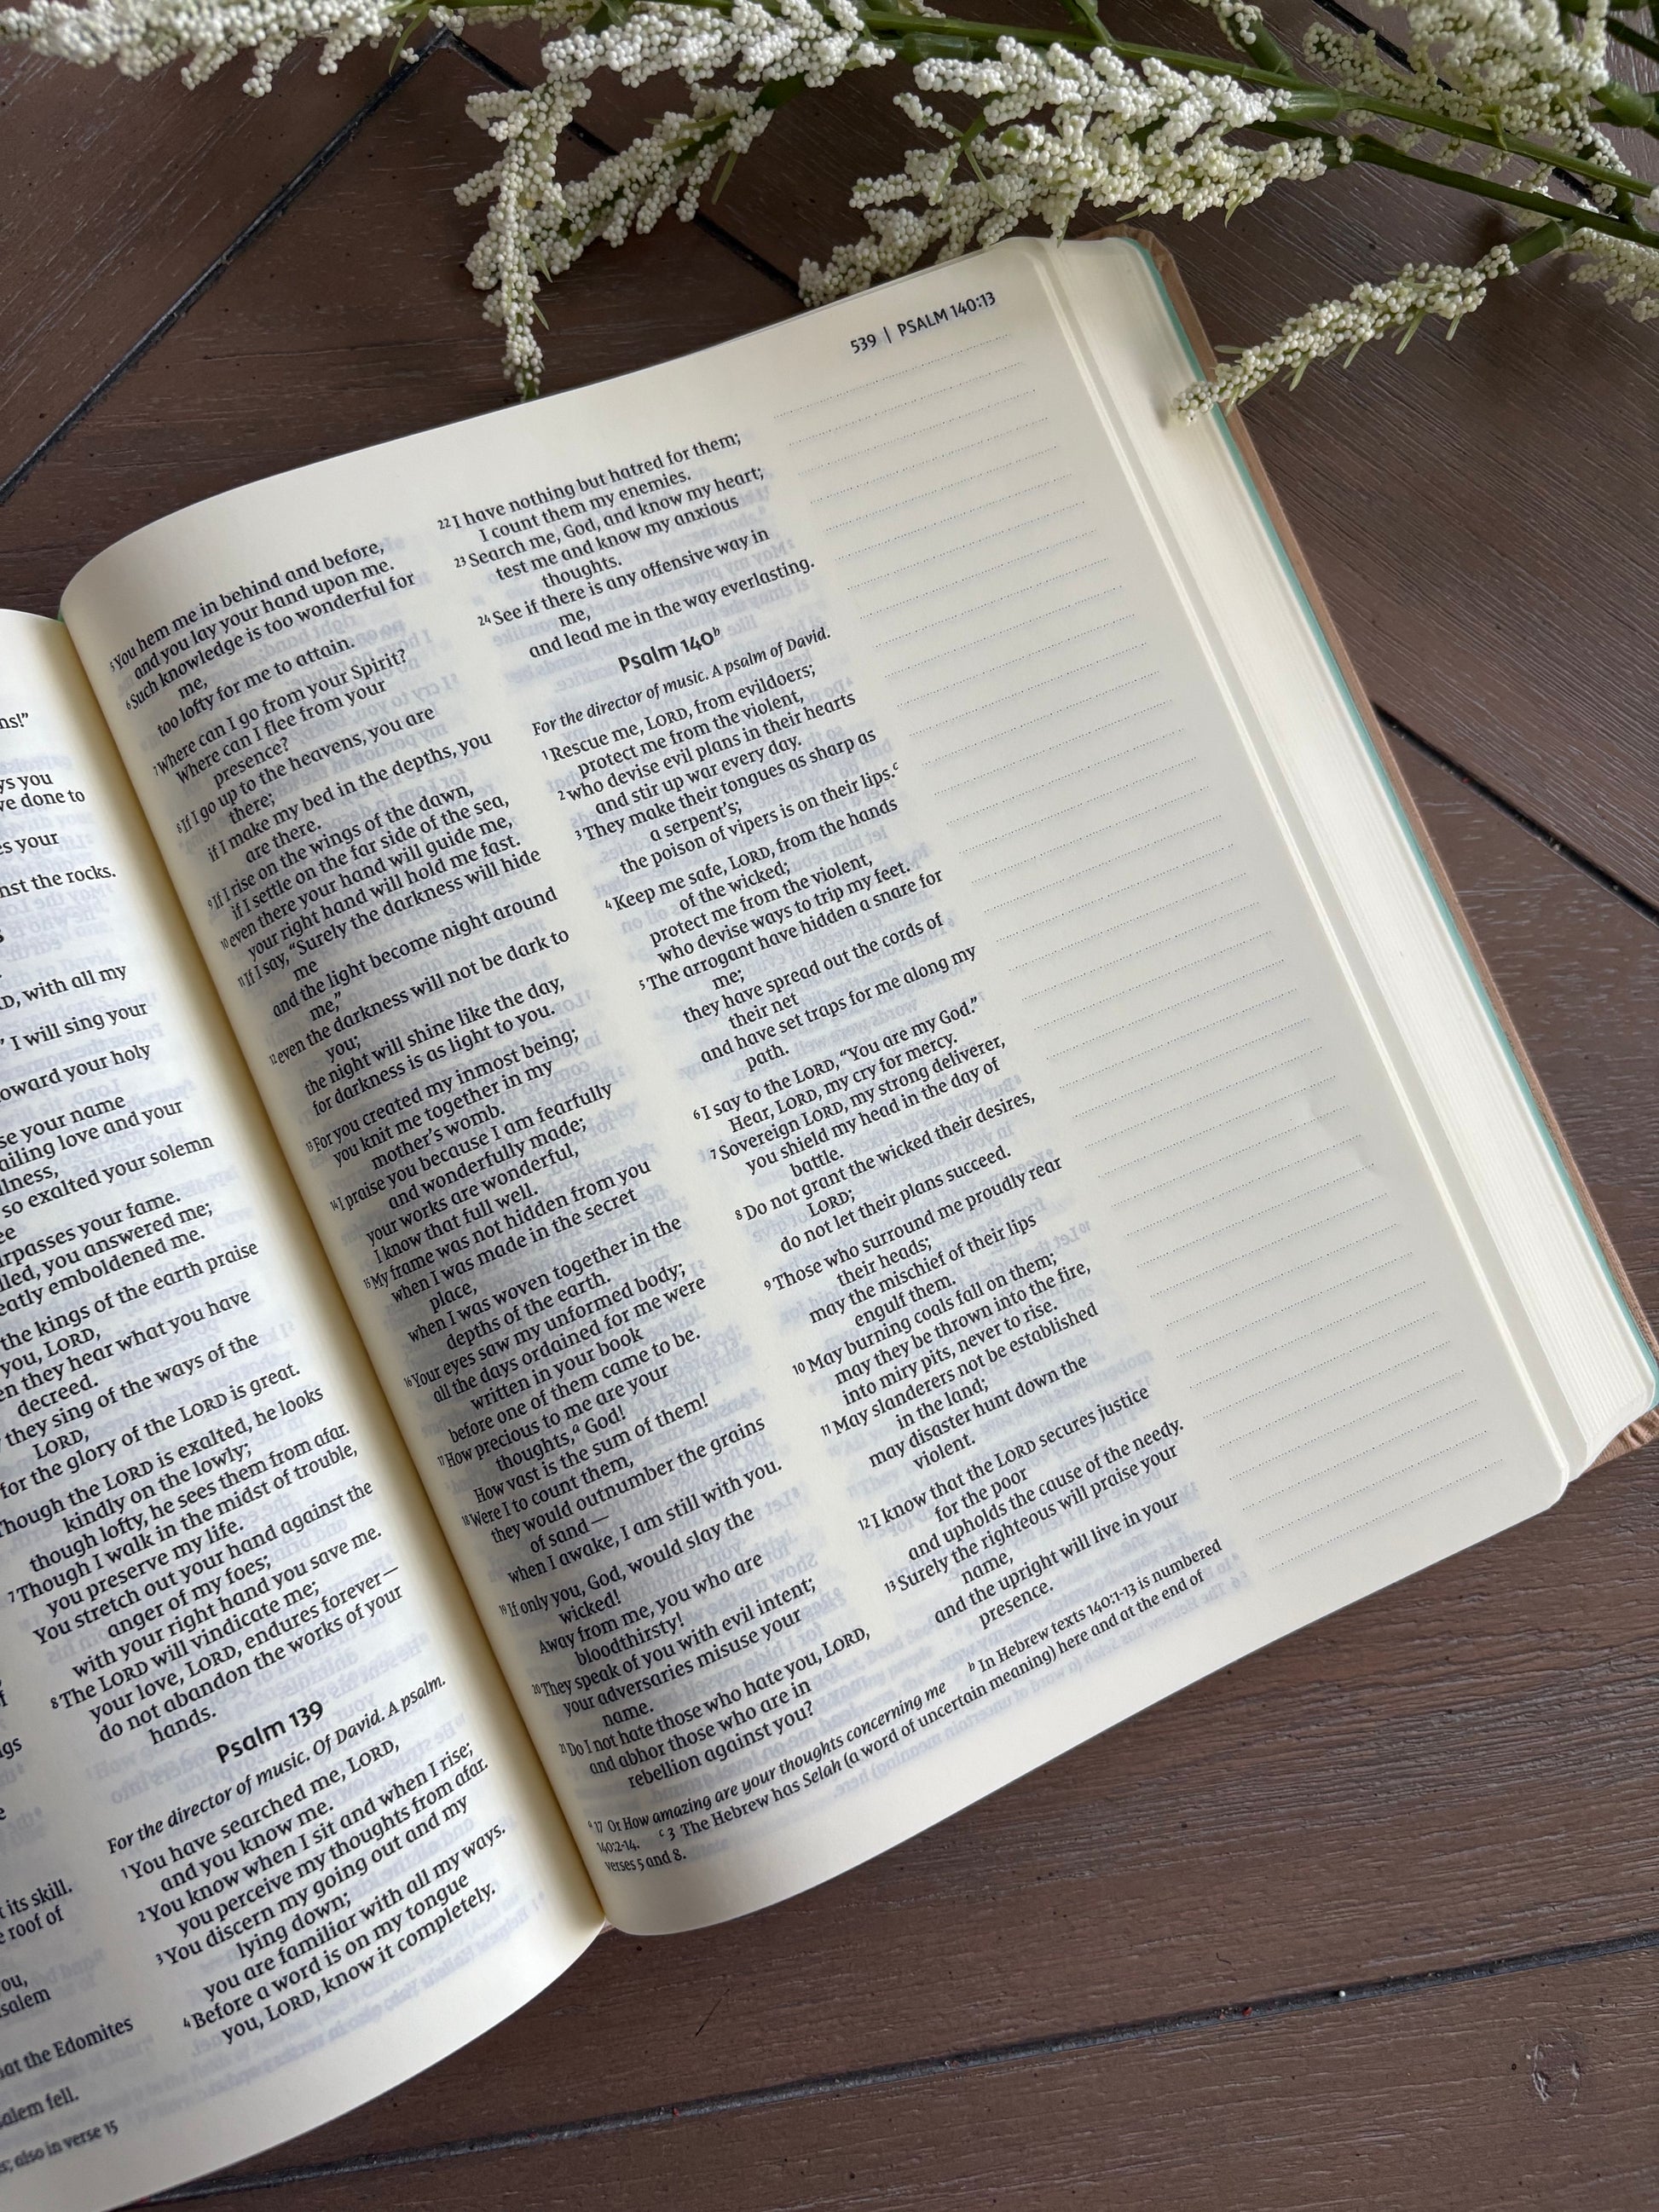 ns!”
ys you
ve done to
es your
nst the rocks.
D, with all my
” I will sing your
toward your holy
se your name
ailing love and your
lness,
so exalted your solemn
ee
rpasses your fame.
lled, you answered me;
eatly emboldened me.
the kings of the earth praise
you, LORD,
en they hear what you have
decreed.
they sing of the ways of the
LORD,
for the glory of the LORD is great.
Though the LORD is exalted, he looks
kindly on the lowly;
though lofty, he sees them from afar.
7 Though I walk in the midst of trouble,
you preserve my life.
You stretch out your hand against the
anger of my foes;
with your right hand you save me.
8 The LORD will vindicate me;
your love, LORD, endures forever—
do not abandon the works of your
hands.
Psalm 139
For the director of music. Of David. A psalm.
1 You have searched me, LORD,
and you know me.
2 You know when I sit and when I rise;
you perceive my thoughts from afar.
3 You discern my going out and my
lying down;
you are familiar with all my ways.
4 Before a word is on my tongue
you, LORD, know it completely.
its skill.
e roof of
ou,
salem
at the Edomites
salem fell.
also in verse 15
539 | PSALM 140:13
5 You hem me in behind and before,
and you lay your hand upon me.
6 Such knowledge is too wonderful for
me,
too lofty for me to attain.
7 Where can I go from your Spirit?
Where can I flee from your
presence?
8 If I go up to the heavens, you are
there;
if I make my bed in the depths, you
are there.
9 If I rise on the wings of the dawn,
if I settle on the far side of the sea,
10 even there your hand will guide me,
your right hand will hold me fast.
11 If I say, “Surely the darkness will hide
me
and the light become night around
me,”
12 even the darkness will not be dark to
you;
the night will shine like the day,
for darkness is as light to you.
13 For you created my inmost being;
you knit me together in my
mother’s womb.
14 I praise you because I am fearfully
and wonderfully made;
your works are wonderful,
I know that full well.
15 My frame was not hidden from you
when I was made in the secret
place,
when I was woven together in the
depths of the earth.
16 Your eyes saw my unformed body;
all the days ordained for me were
written in your book
before one of them came to be.
17 How precious to me are your
thoughts,a God!
How vast is the sum of them!
18 Were I to count them,
they would outnumber the grains
of sand—
when I awake, I am still with you.
19 If only you, God, would slay the
wicked!
Away from me, you who are
bloodthirsty!
20 They speak of you with evil intent;
your adversaries misuse your
name.
21 Do I not hate those who hate you, LORD,
and abhor those who are in
rebellion against you?
22 I have nothing but hatred for them;
I count them my enemies.
23 Search me, God, and know my heart;
test me and know my anxious
thoughts.
24 See if there is any offensive way in
me,
and lead me in the way everlasting.
Psalm 140b
For the director of music. A psalm of David.
1 Rescue me, LORD, from evildoers;
protect me from the violent,
2 who devise evil plans in their hearts
and stir up war every day.
3 They make their tongues as sharp as
a serpent’s;
the poison of vipers is on their lips.c
4 Keep me safe, LORD, from the hands
of the wicked;
protect me from the violent,
who devise ways to trip my feet.
5 The arrogant have hidden a snare for
me;
they have spread out the cords of
their net
and have set traps for me along my
path.
6 I say to the LORD, “You are my God.”
Hear, LORD, my cry for mercy.
7 Sovereign LORD, my strong deliverer,
you shield my head in the day of
battle.
8 Do not grant the wicked their desires,
LORD;
do not let their plans succeed.
9 Those who surround me proudly rear
their heads;
may the mischief of their lips
engulf them.
10 May burning coals fall on them;
may they be thrown into the fire,
into miry pits, never to rise.
11 May slanderers not be established
in the land;
may disaster hunt down the
violent.
12 I know that the LORD secures justice
for the poor
and upholds the cause of the needy.
13 Surely the righteous will praise your
name,
and the upright will live in your
presence.
a 17 Or How amazing are your thoughts concerning me b In Hebrew texts 140:1-13 is numbered
140:2-14. c 3 The Hebrew has Selah (a word of uncertain meaning) here and at the end of
verses 5 and 8.